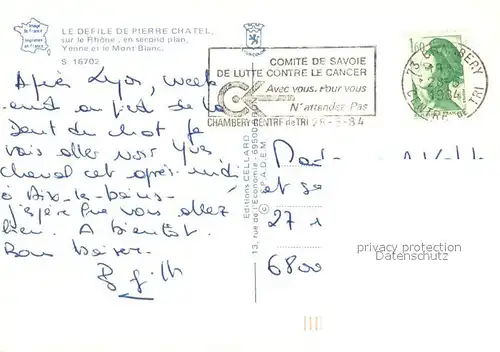 Image de France
LE DEFILE DE PIERRE CHATEL,
sur le Rhône; en second plan,
Yenne et le Mont Blanc.
S 16702
Après Lyon, week
end au pied de la
Dent du chat. Je
vais aller voir Yves
cheval cet après-midi
à Aix-les-bains.
J'espère que vous allez
bien. A bientôt.
Bons baisers.
Editions CELLARD
13, rue de l'Economie, 69500 BRON
© S.P.A.D.E.M.
COMITE DE SAVOIE
DE LUTTE CONTRE LE CANCER
Avec vous, Pour vous
N'attendez Pas
CHAMBERY CENTRE de TRI 26-3-84
1,60
73 CHAMBERY
1984
CENTRE DE TRI
et
27
6800
privacy protection
Datenschutz